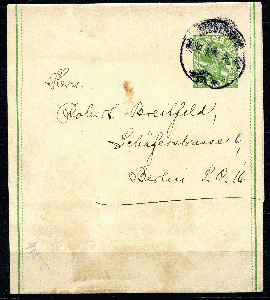 Herr
Robert Breitfeld,
Schäferstrasse 6,
Berlin S.O. 16